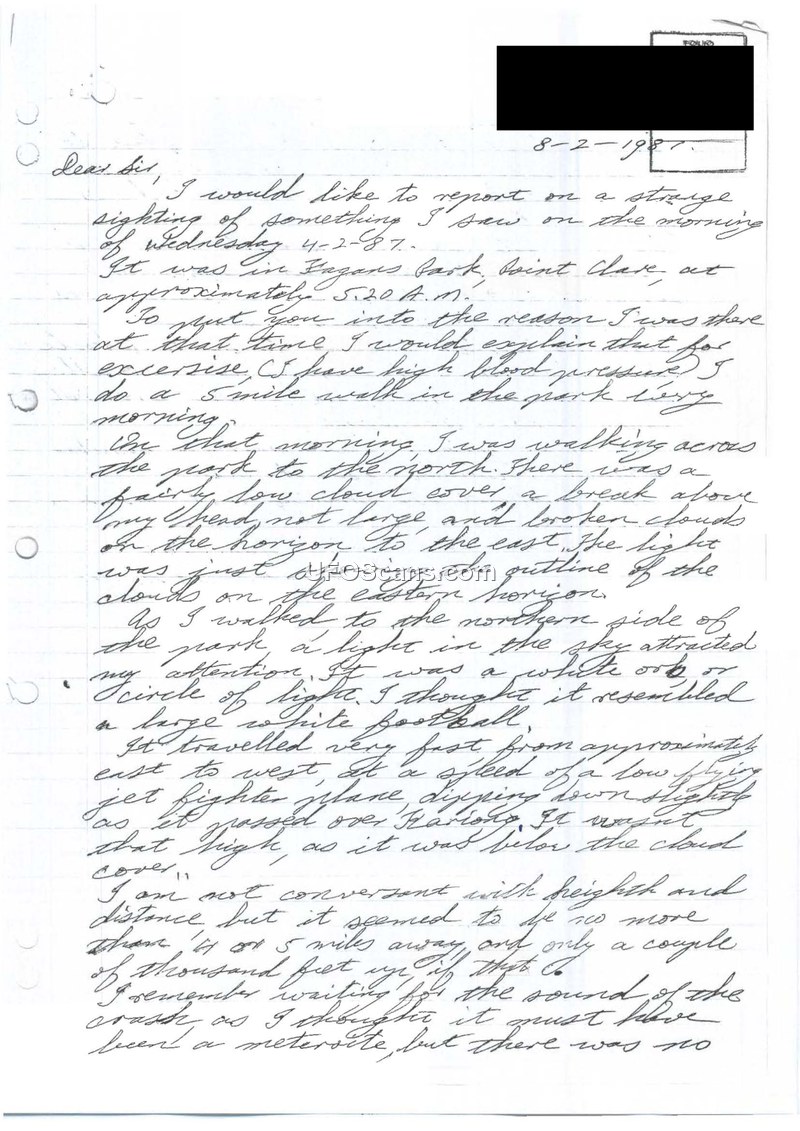 8-2-1987.
Dear Sir,
I would like to report on a strange
sighting of something I saw on the morning
of Wednesday 4-2-87.
It was in Fagans Park, Point Clare, at
approximately 5.20 A.M.
To put you into the reason I was there
at that time, I would explain that for
excersise, (I have high blood pressure) I
do a 5 mile walk in the park every
morning.
On that morning, I was walking across
the park to the north. There was a
fairly low cloud cover, a break above
my head, not large, and broken clouds
on the horizon to the east. The light
was just outline of the
UFOScans.com
clouds on the eastern horizon.
As I walked to the northern side of
the park, a light in the sky attracted
my attention. It was a white orb, or
circle of light. I thought it resembled
a large white football.
It travelled very fast from approximately
east to west, at a speed of a low flying
jet fighter plane, dipping down slightly
as it passed over Kariong. It wasn't
that high, as it was below the cloud
cover.
I am not conversant with heighth and
distance, but it seemed to be no more
than 4 or 5 miles away, and only a couple
of thousand feet up, if that.
I remember waiting for the sound of the
crash, as I thought it must have
been a meteroite, but there was no